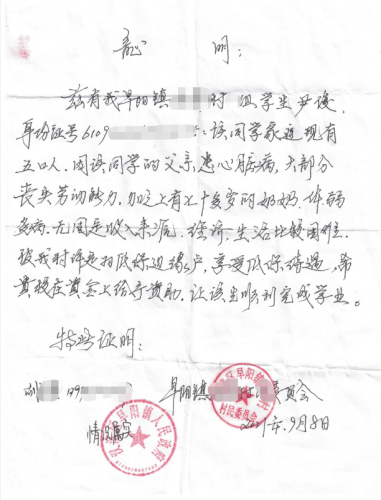 证 明：
兹有我旱阳镇 村 组学生尹俊，
身份证号6109 ：该同学家庭现有
五口人，因该同学的父亲患心脏病，大部分
丧失劳动能力，加之上有七十多岁的奶奶，体弱
多病，无固定收入来源，经济生活比较困难。
被我村评定为低保边缘户，享受低保待遇，希
贵校在资金上给予资助，让该生顺利完成学业。
特此证明！
旱阳镇 委员会
情况属实
2021年9月8日
旱阳镇人民政府
旱阳镇
村民委员会